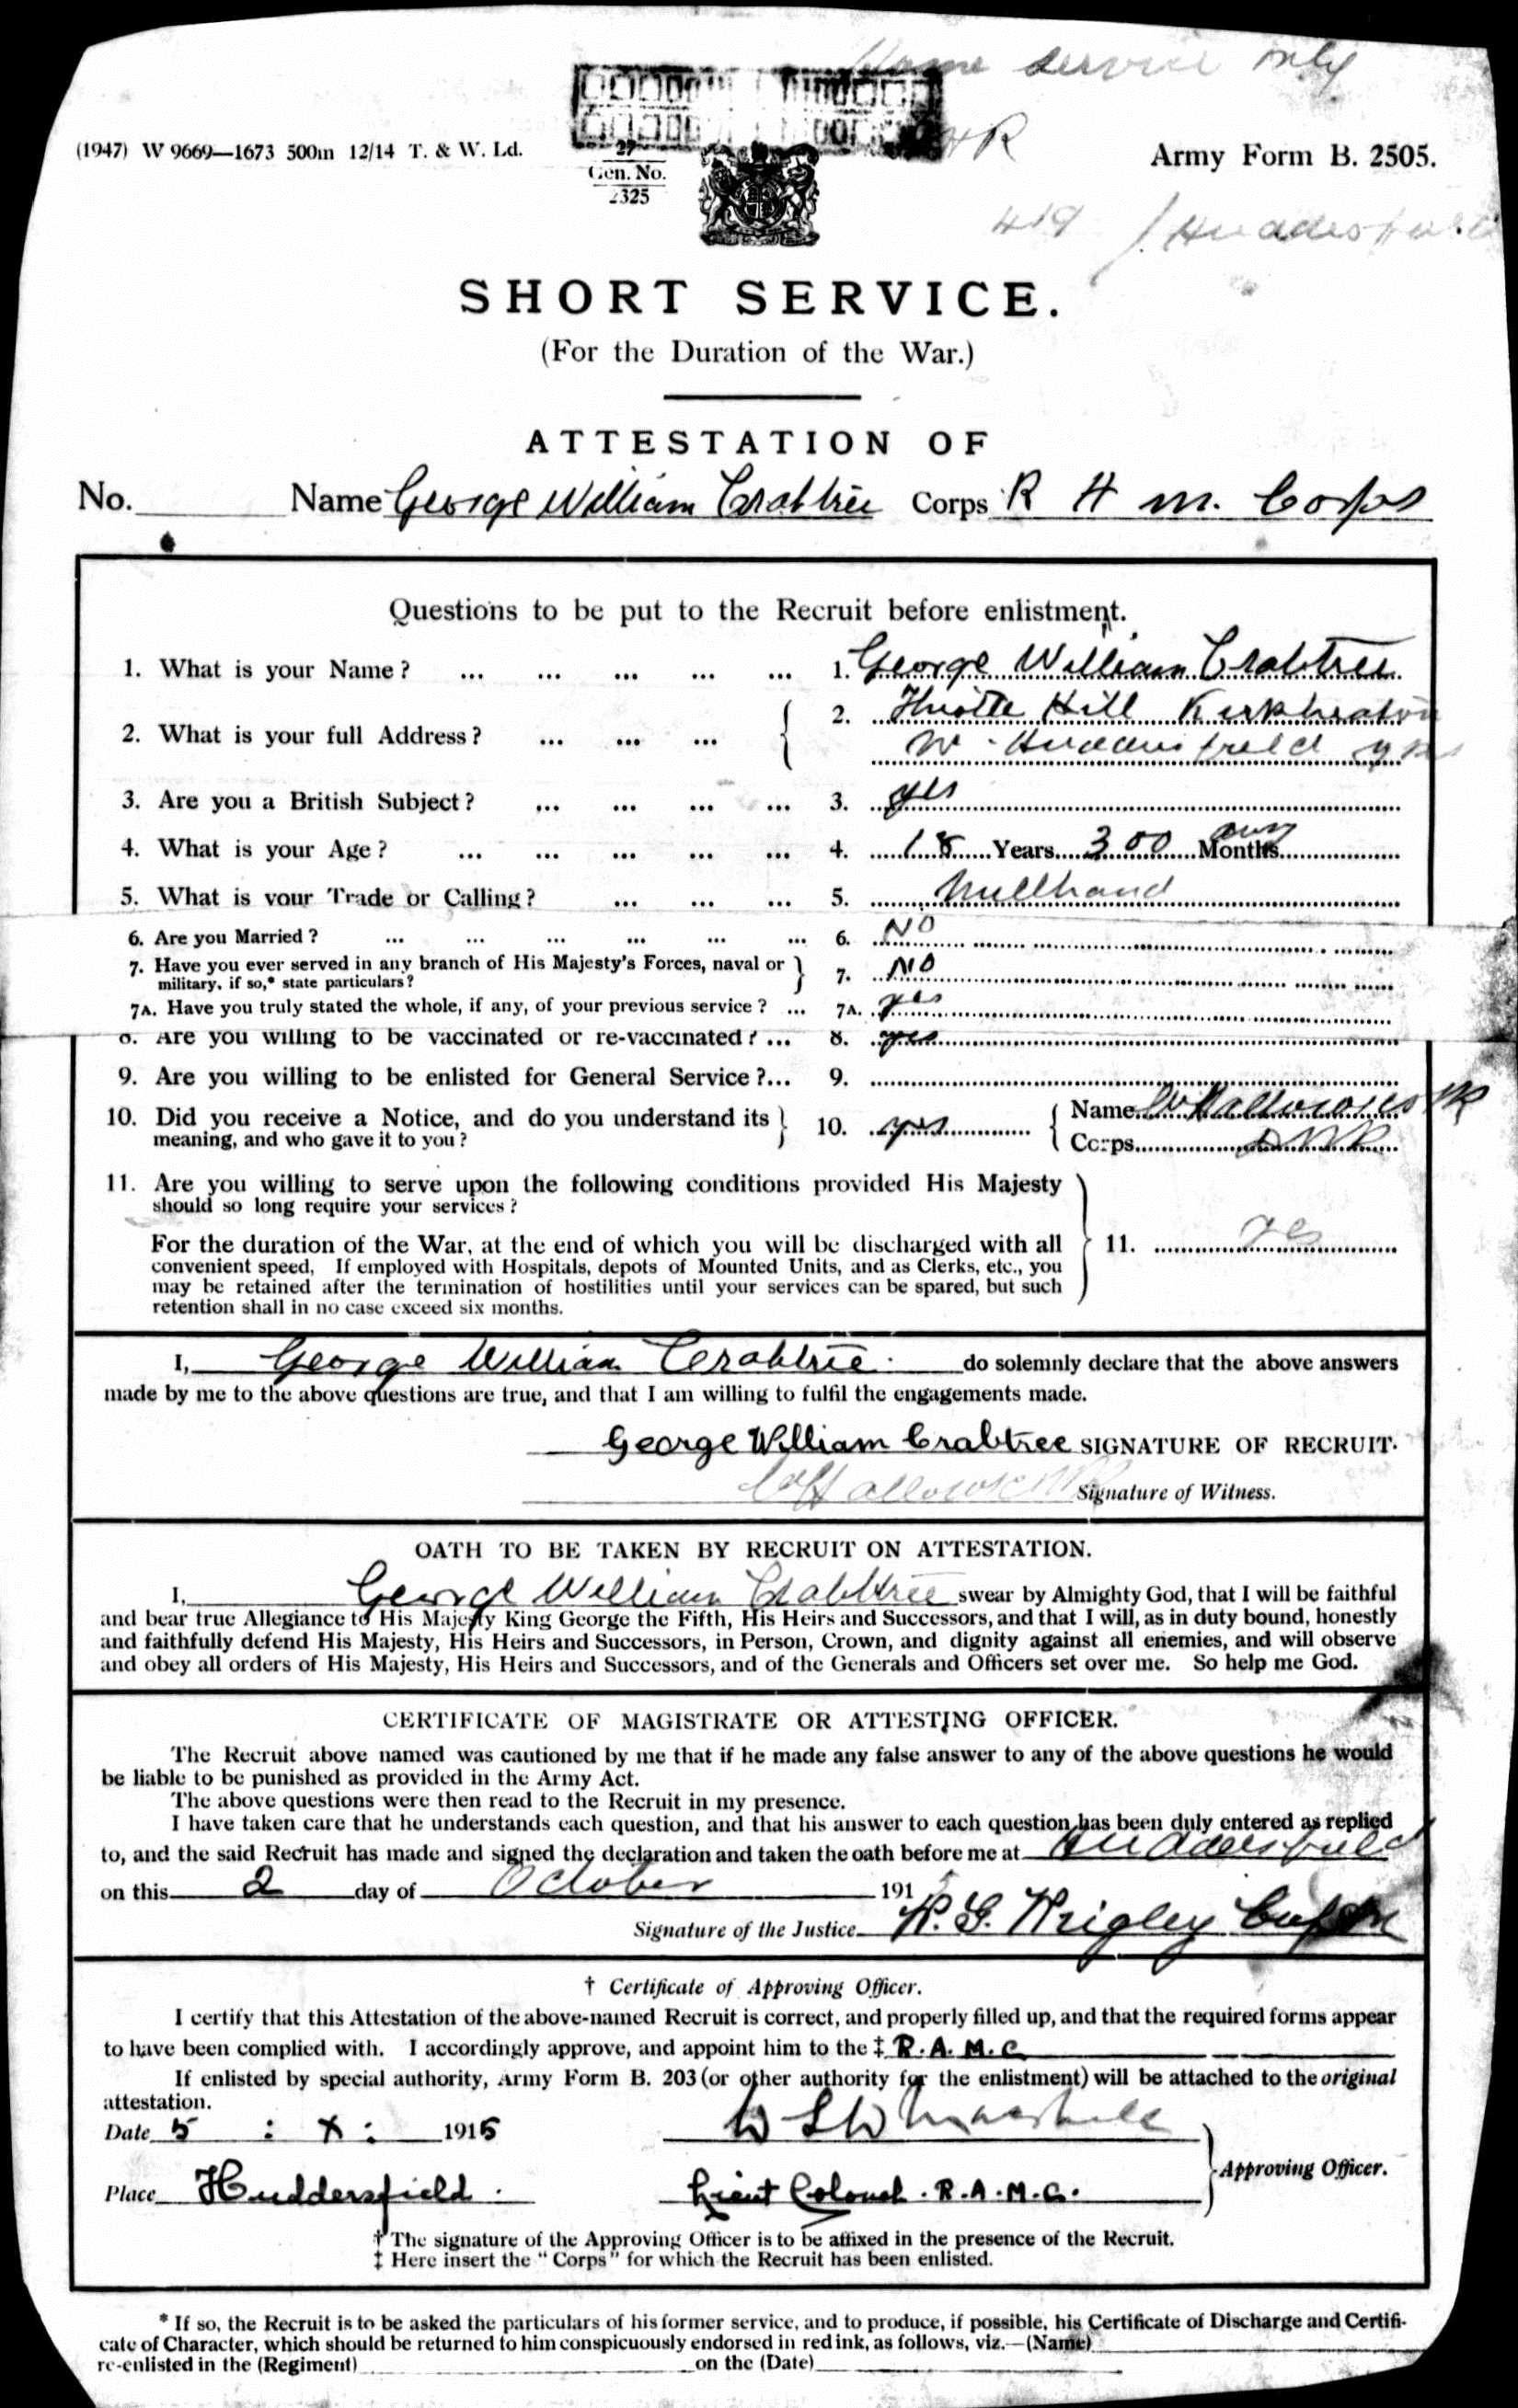 Home service only
(1947) W 9669—1673 500m 12/14 T. & W. Ld.
27
Gen. No.
2325
Army Form B. 2505.
419 / Huddersfield
SHORT SERVICE.
(For the Duration of the War.)
ATTESTATION OF
No. Name George William Crabtree Corps R A M. Corps
Questions to be put to the Recruit before enlistment.
1. What is your Name? ... ... ... ... ... 1. George William Crabtree
2. What is your full Address? ... ... ... 2. Hill Kirkheaton
Nr Huddersfield Yks
3. Are you a British Subject? ... ... ... ... 3. yes
4. What is your Age? ... ... ... ... ... 4. 18 Years 300 Months days
5. What is your Trade or Calling? ... ... ... 5. Millhand
6. Are you Married? ... ... ... ... ... ... 6. NO
7. Have you ever served in any branch of His Majesty's Forces, naval or
military, if so,* state particulars? 7. NO
7A. Have you truly stated the whole, if any, of your previous service? ... 7A. yes
8. Are you willing to be vaccinated or re-vaccinated? ... 8. yes
9. Are you willing to be enlisted for General Service?... 9.
10. Did you receive a Notice, and do you understand its
meaning, and who gave it to you? 10. yes Name
Corps
11. Are you willing to serve upon the following conditions provided His Majesty
should so long require your services?
For the duration of the War, at the end of which you will be discharged with all 11. yes
convenient speed, If employed with Hospitals, depots of Mounted Units, and as Clerks, etc., you
may be retained after the termination of hostilities until your services can be spared, but such
retention shall in no case exceed six months.
I, George William Crabtree do solemnly declare that the above answers
made by me to the above questions are true, and that I am willing to fulfil the engagements made.
George William Crabtree SIGNATURE OF RECRUIT.
Signature of Witness.
OATH TO BE TAKEN BY RECRUIT ON ATTESTATION.
I, George William Crabtree swear by Almighty God, that I will be faithful
and bear true Allegiance to His Majesty King George the Fifth, His Heirs and Successors, and that I will, as in duty bound, honestly
and faithfully defend His Majesty, His Heirs and Successors, in Person, Crown, and dignity against all enemies, and will observe
and obey all orders of His Majesty, His Heirs and Successors, and of the Generals and Officers set over me. So help me God.
CERTIFICATE OF MAGISTRATE OR ATTESTING OFFICER.
The Recruit above named was cautioned by me that if he made any false answer to any of the above questions he would
be liable to be punished as provided in the Army Act.
The above questions were then read to the Recruit in my presence.
I have taken care that he understands each question, and that his answer to each question has been duly entered as replied
to, and the said Recruit has made and signed the declaration and taken the oath before me at Huddersfield
on this 2 day of October 191
Signature of the Justice Wrigley
† Certificate of Approving Officer.
I certify that this Attestation of the above-named Recruit is correct, and properly filled up, and that the required forms appear
to have been complied with. I accordingly approve, and appoint him to the ‡ R.A.M.C
If enlisted by special authority, Army Form B. 203 (or other authority for the enlistment) will be attached to the original
attestation.
Date 5 : X : 1915
Approving Officer.
Place Huddersfield. Lieut Colonel. R.A.M.C.
† The signature of the Approving Officer is to be affixed in the presence of the Recruit.
‡ Here insert the "Corps" for which the Recruit has been enlisted.
* If so, the Recruit is to be asked the particulars of his former service, and to produce, if possible, his Certificate of Discharge and Certifi-
cate of Character, which should be returned to him conspicuously endorsed in red ink, as follows, viz.—(Name)
re-enlisted in the (Regiment) on the (Date)